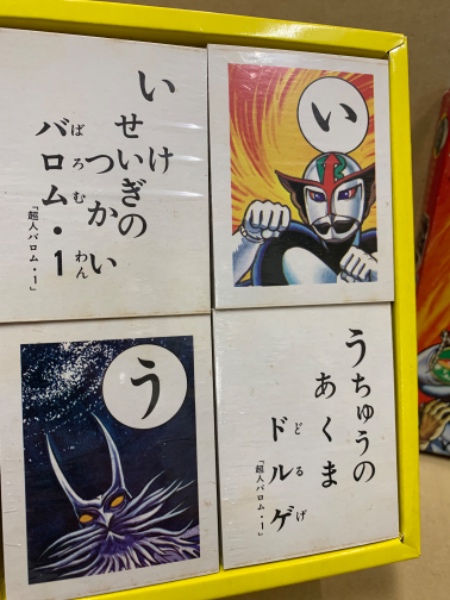 いけ
せいぎの
つかい
バロム・1
ばろむ わん
「超人バロム・1」
い
う
うちゅうの
あくま
ドルゲ
どるげ
「超人バロム・1」